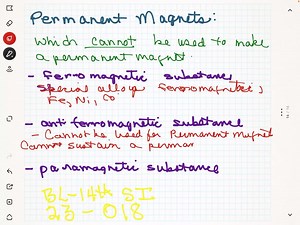 Permanent Magnets:
Which cannot be used to make
a permanent magnet.
- ferromagnetic substance
special alloys ferromagnetic,
Fe, Ni, Co
- anti ferromagnetic substance
- Cannot be used for Permanent Magnet
Cannot sustain a perman
- paramagnetic substance
BL-14th SI
23-018